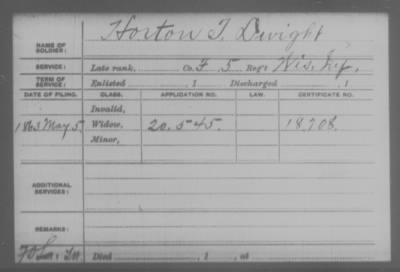 Horton T. Dwight
NAME OF SOLDIER:
SERVICE: Late rank, Co. F 5 Reg't Wis. Inf.
TERM OF SERVICE: Enlisted , 1 Discharged , 1
DATE OF FILING. CLASS. APPLICATION NO. LAW. CERTIFICATE NO.
Invalid,
1863 May 5. Widow, 20.545. 18,708.
Minor,
ADDITIONAL SERVICES:
REMARKS:
Died , 1 , at